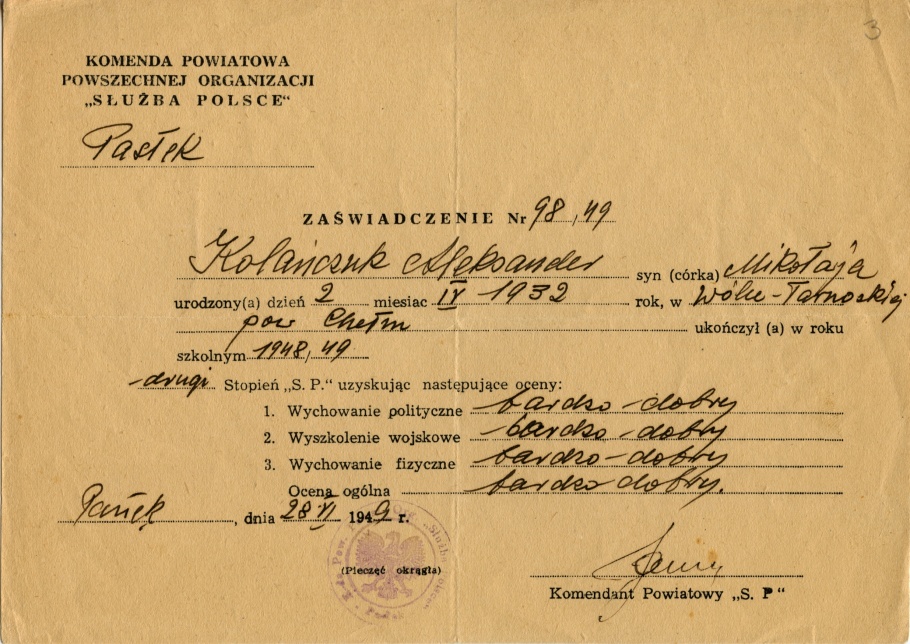 3
KOMENDA POWIATOWA
POWSZECHNEJ ORGANIZACJI
„SŁUŻBA POLSCE“
Pasłęk
ZAŚWIADCZENIE Nr 98/49
Kolańczuk Aleksander syn (córka) Mikołaja
urodzony(a) dzień 2 miesiac IV 1932 rok, w Wólce-Tarnowskiej
pow Chełm ukończył (a) w roku
szkolnym 1948/49
drugi Stopień „S. P.“ uzyskując następujące oceny:
1. Wychowanie polityczne bardzo-dobry
2. Wyszkolenie wojskowe bardzo-dobry
3. Wychowanie fizyczne bardzo-dobry
Ocena ogólna bardzo dobry.
Pasłęk, dnia 28 VI 1949 r.
(Pieczęć okrągła)
Komendant Powiatowy „S. P“